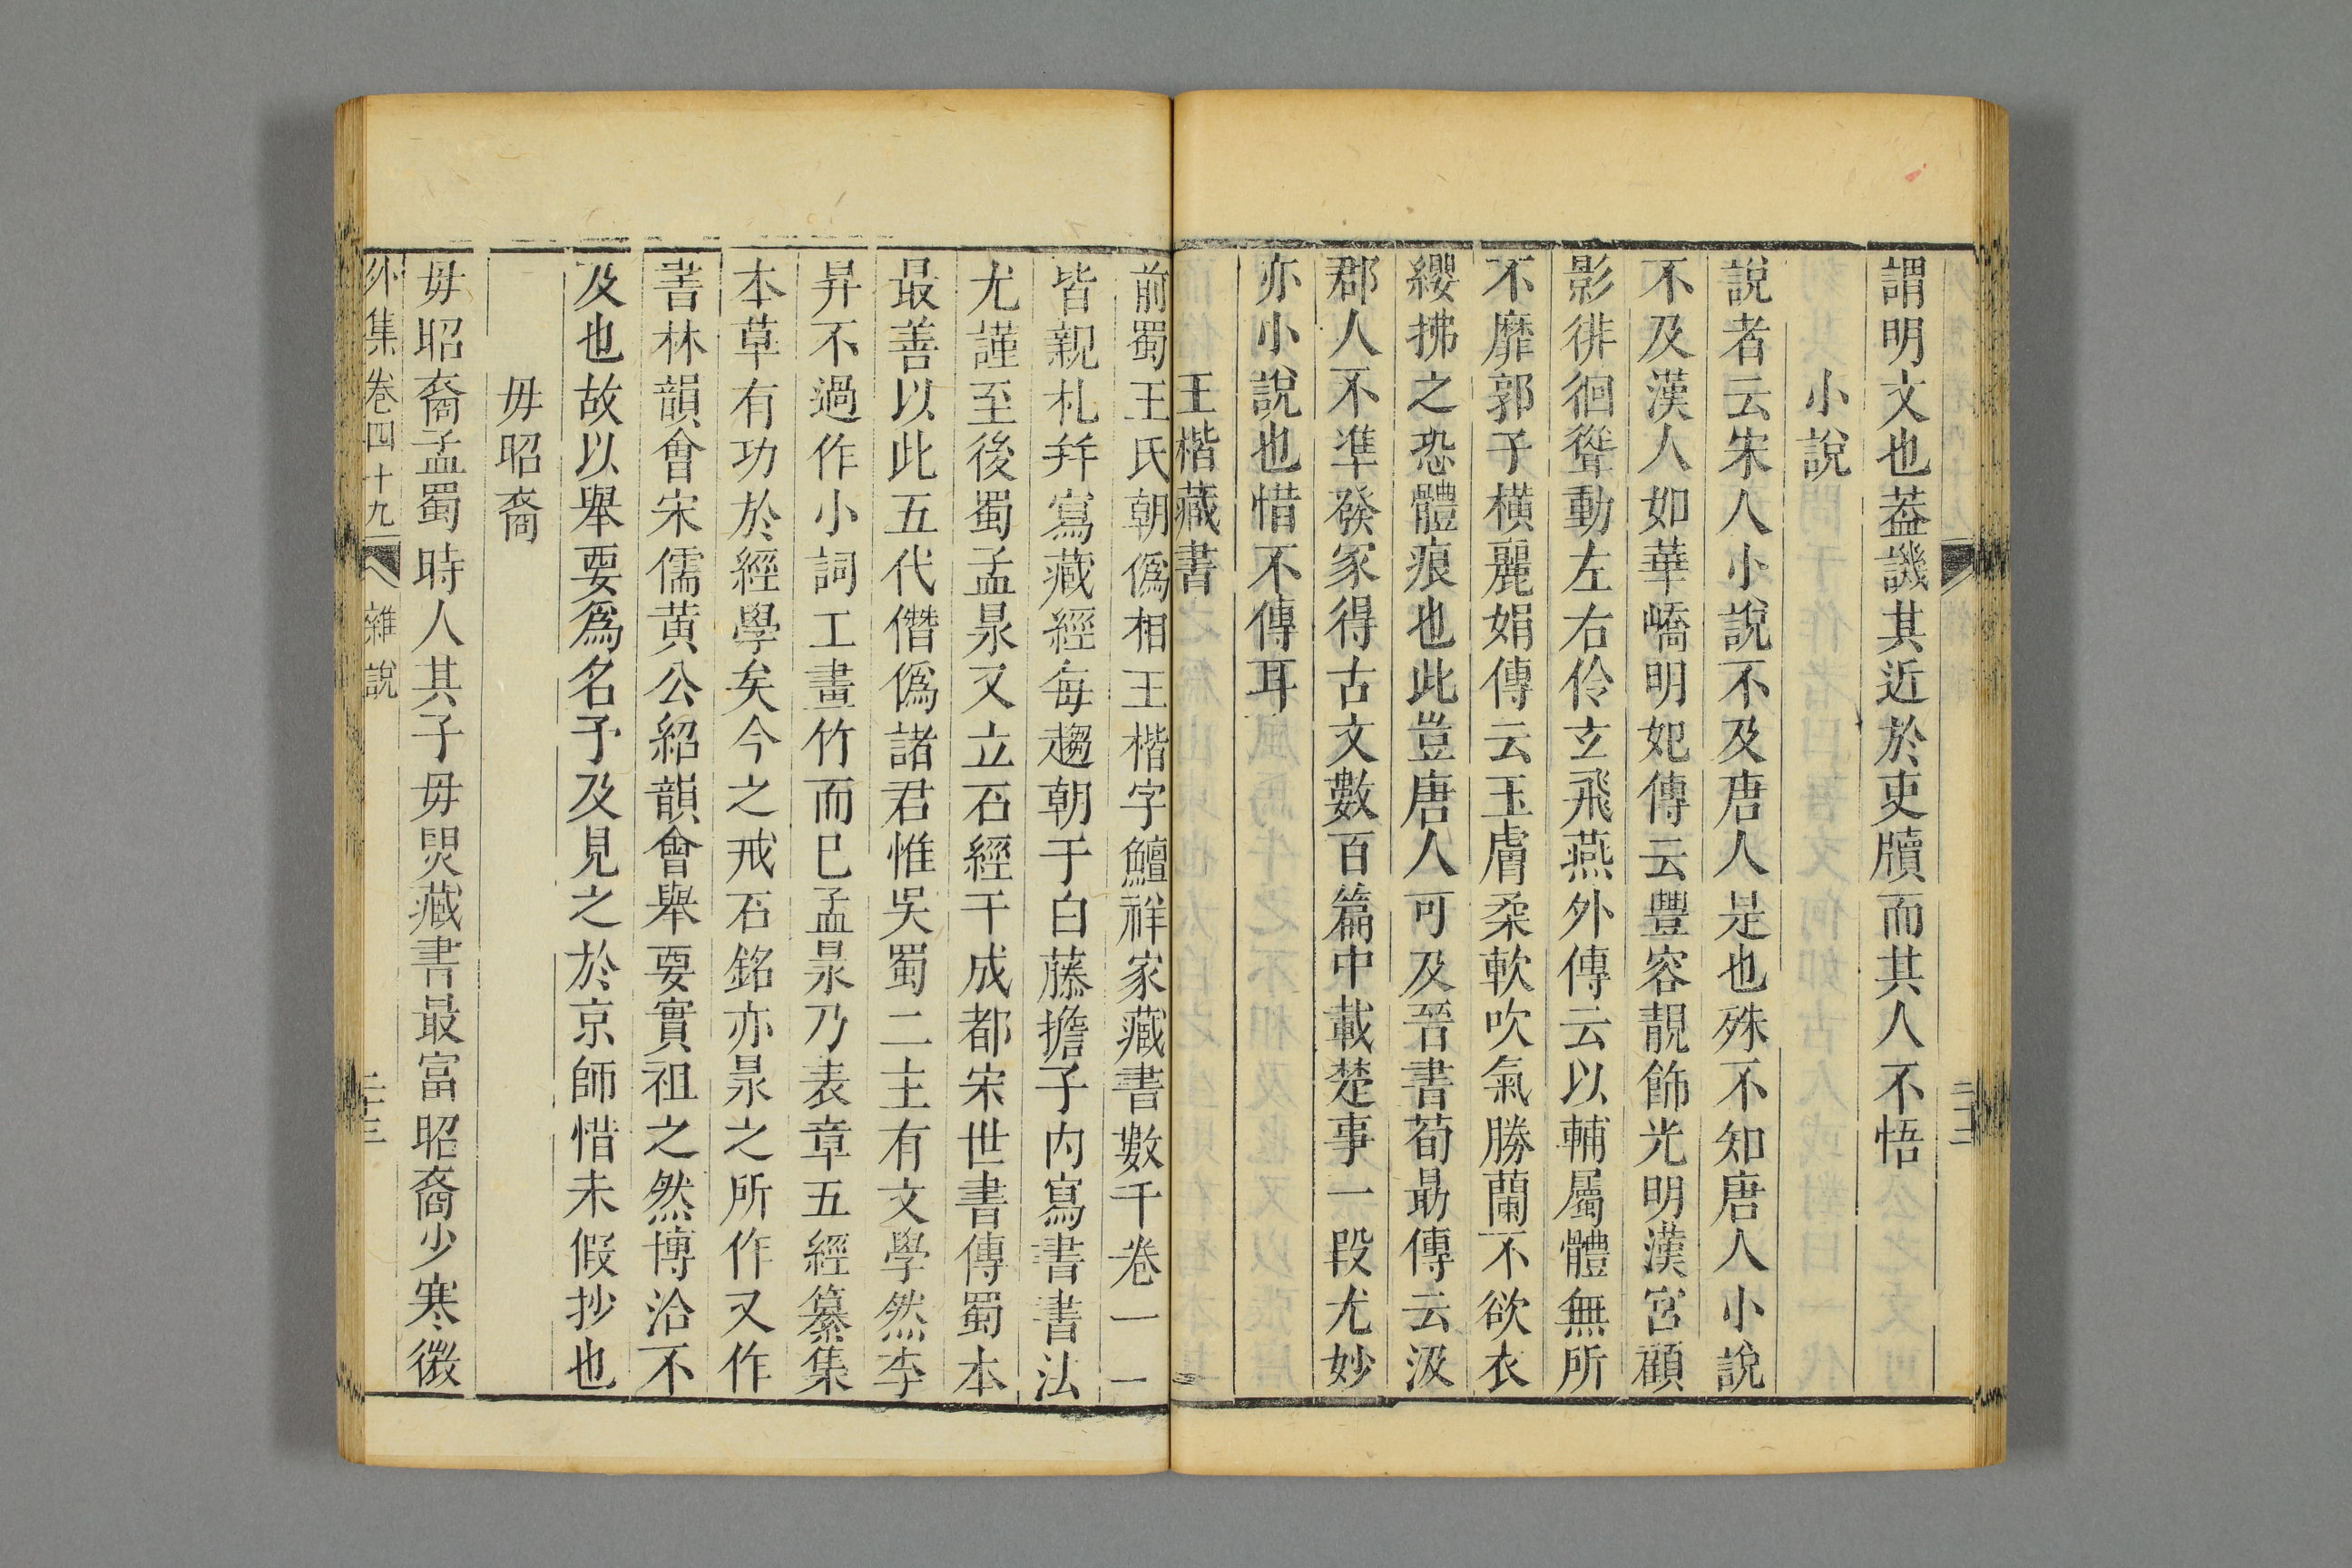 謂明文也葢譏其近於吏牘而其人不悟
小說
說者云宋人小說不及唐人是也殊不知唐人小說
不及漢人如華嶠明妃傳云豐容靚飾光明漢宮顧
影徘徊聳動左右伶玄飛燕外傳云以輔屬體無所
不靡郭子橫麗娟傳云玉膚柔軟吹氣勝蘭不欲衣
纓拂之恐體痕也此豈唐人可及晉書荀勗傳云汲
郡人不凖發冢得古文數百篇中載楚事一段尤妙
亦小說也惜不傳耳
王楷藏書
前蜀王氏朝僞相王楷字鱣祥家藏書數千卷一一
皆親札幷寫藏經每趨朝于白藤擔子内寫書書法
尤謹至後蜀孟昶又立石經于成都宋世書傳蜀本
最善以此五代僭僞諸君惟吳蜀二主有文學然李
昇不過作小詞工畫竹而巳孟昶乃表章五經纂集
本草有功於經學矣今之戒石銘亦昶之所作又作
書林韻會宋儒黃公紹韻會舉要實祖之然博洽不
及也故以舉要爲名予及見之於京師惜未假抄也
毋昭裔
毋昭裔孟蜀時人其子毋煚藏書最富昭裔少寒微
外集卷四十九 雜說 二十三